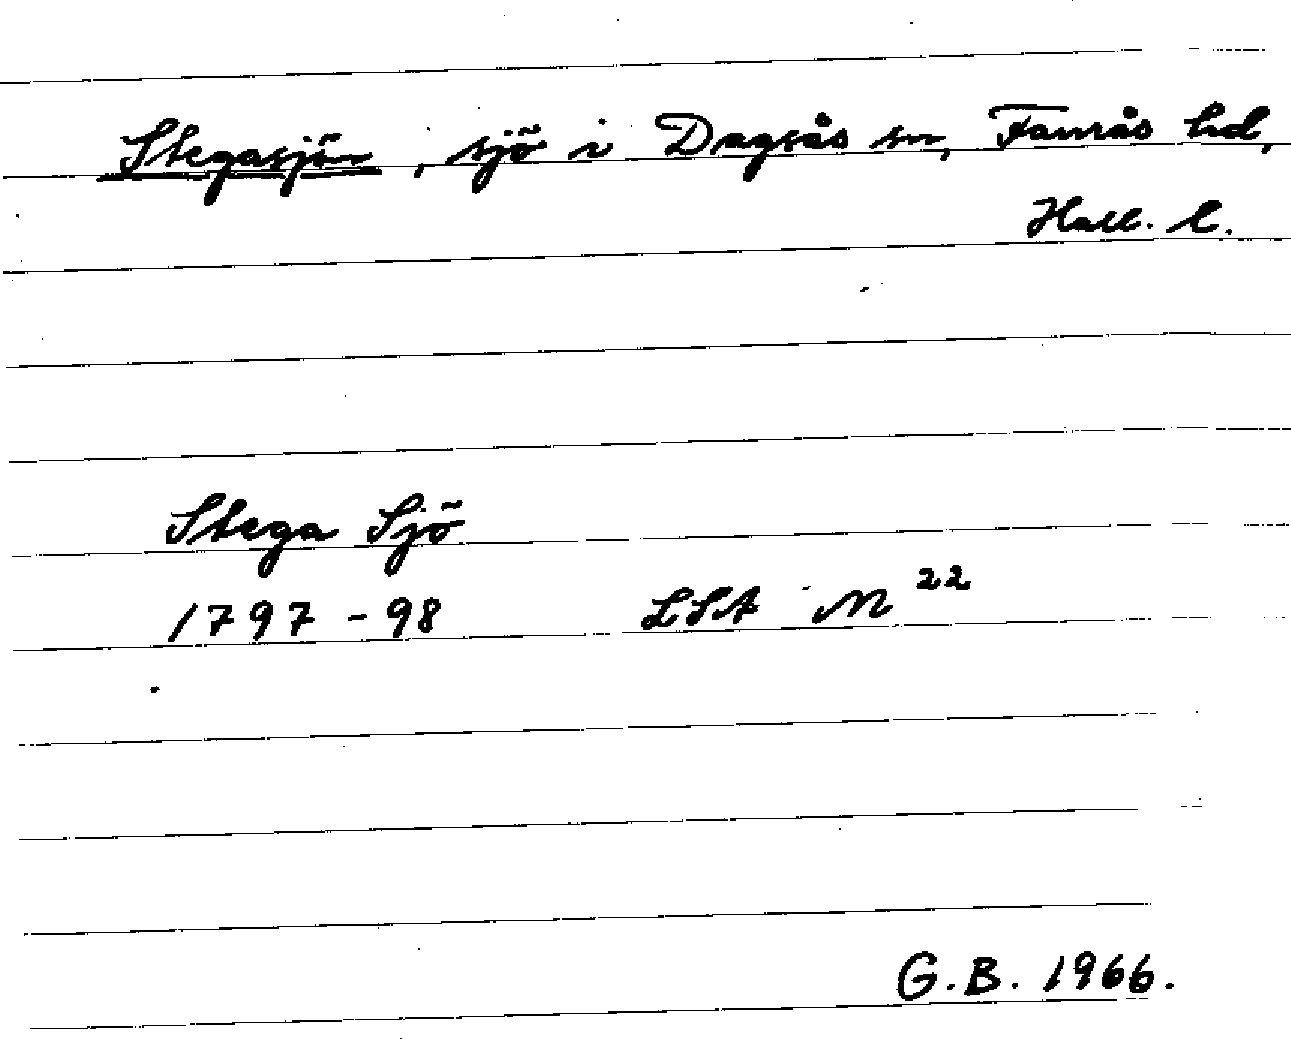 Stegasjön, sjö i Dagsås sn, Faurås hd,
Hall. l.
Stega Sjö
1797-98 LSA M 22
G.B. 1966.